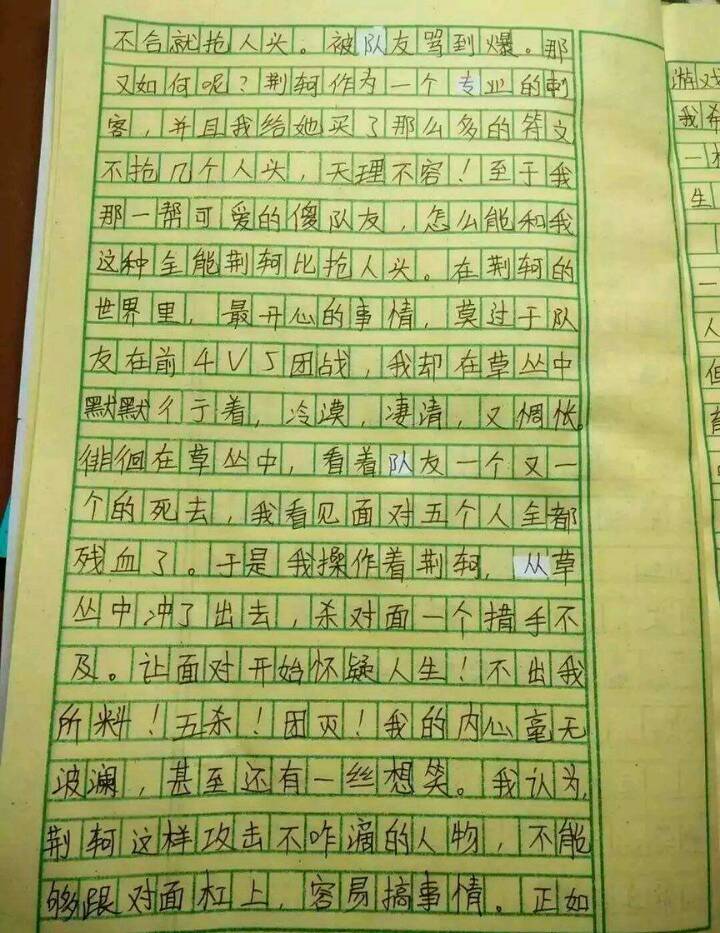 不合就抢人头。被队友骂到爆。那
又如何呢？荆轲作为一个专业的刺
客，并且我给她买了那么多的符文
不抢几个人头，天理不容！至于我
那一帮可爱的傻队友，怎么能和我
这种全能荆轲比抢人头。在荆轲的
世界里，最开心的事情，莫过于队
友在前4V5团战，我却在草丛中
默默彳亍着，冷漠，凄清，又惆怅。
徘徊在草丛中，看着队友一个又一
个的死去，我看见面对五个人全都
残血了。于是我操作着荆轲，从草
丛中冲了出去，杀对面一个措手不
及。让面对开始怀疑人生！不出我
所料！五杀！团灭！我的内心毫无
波澜，甚至还有一丝想笑。我认为，
荆轲这样攻击不咋滴的人物，不能
够跟对面杠上，容易搞事情。正如
游戏
我希
一
生
一
人
但
育